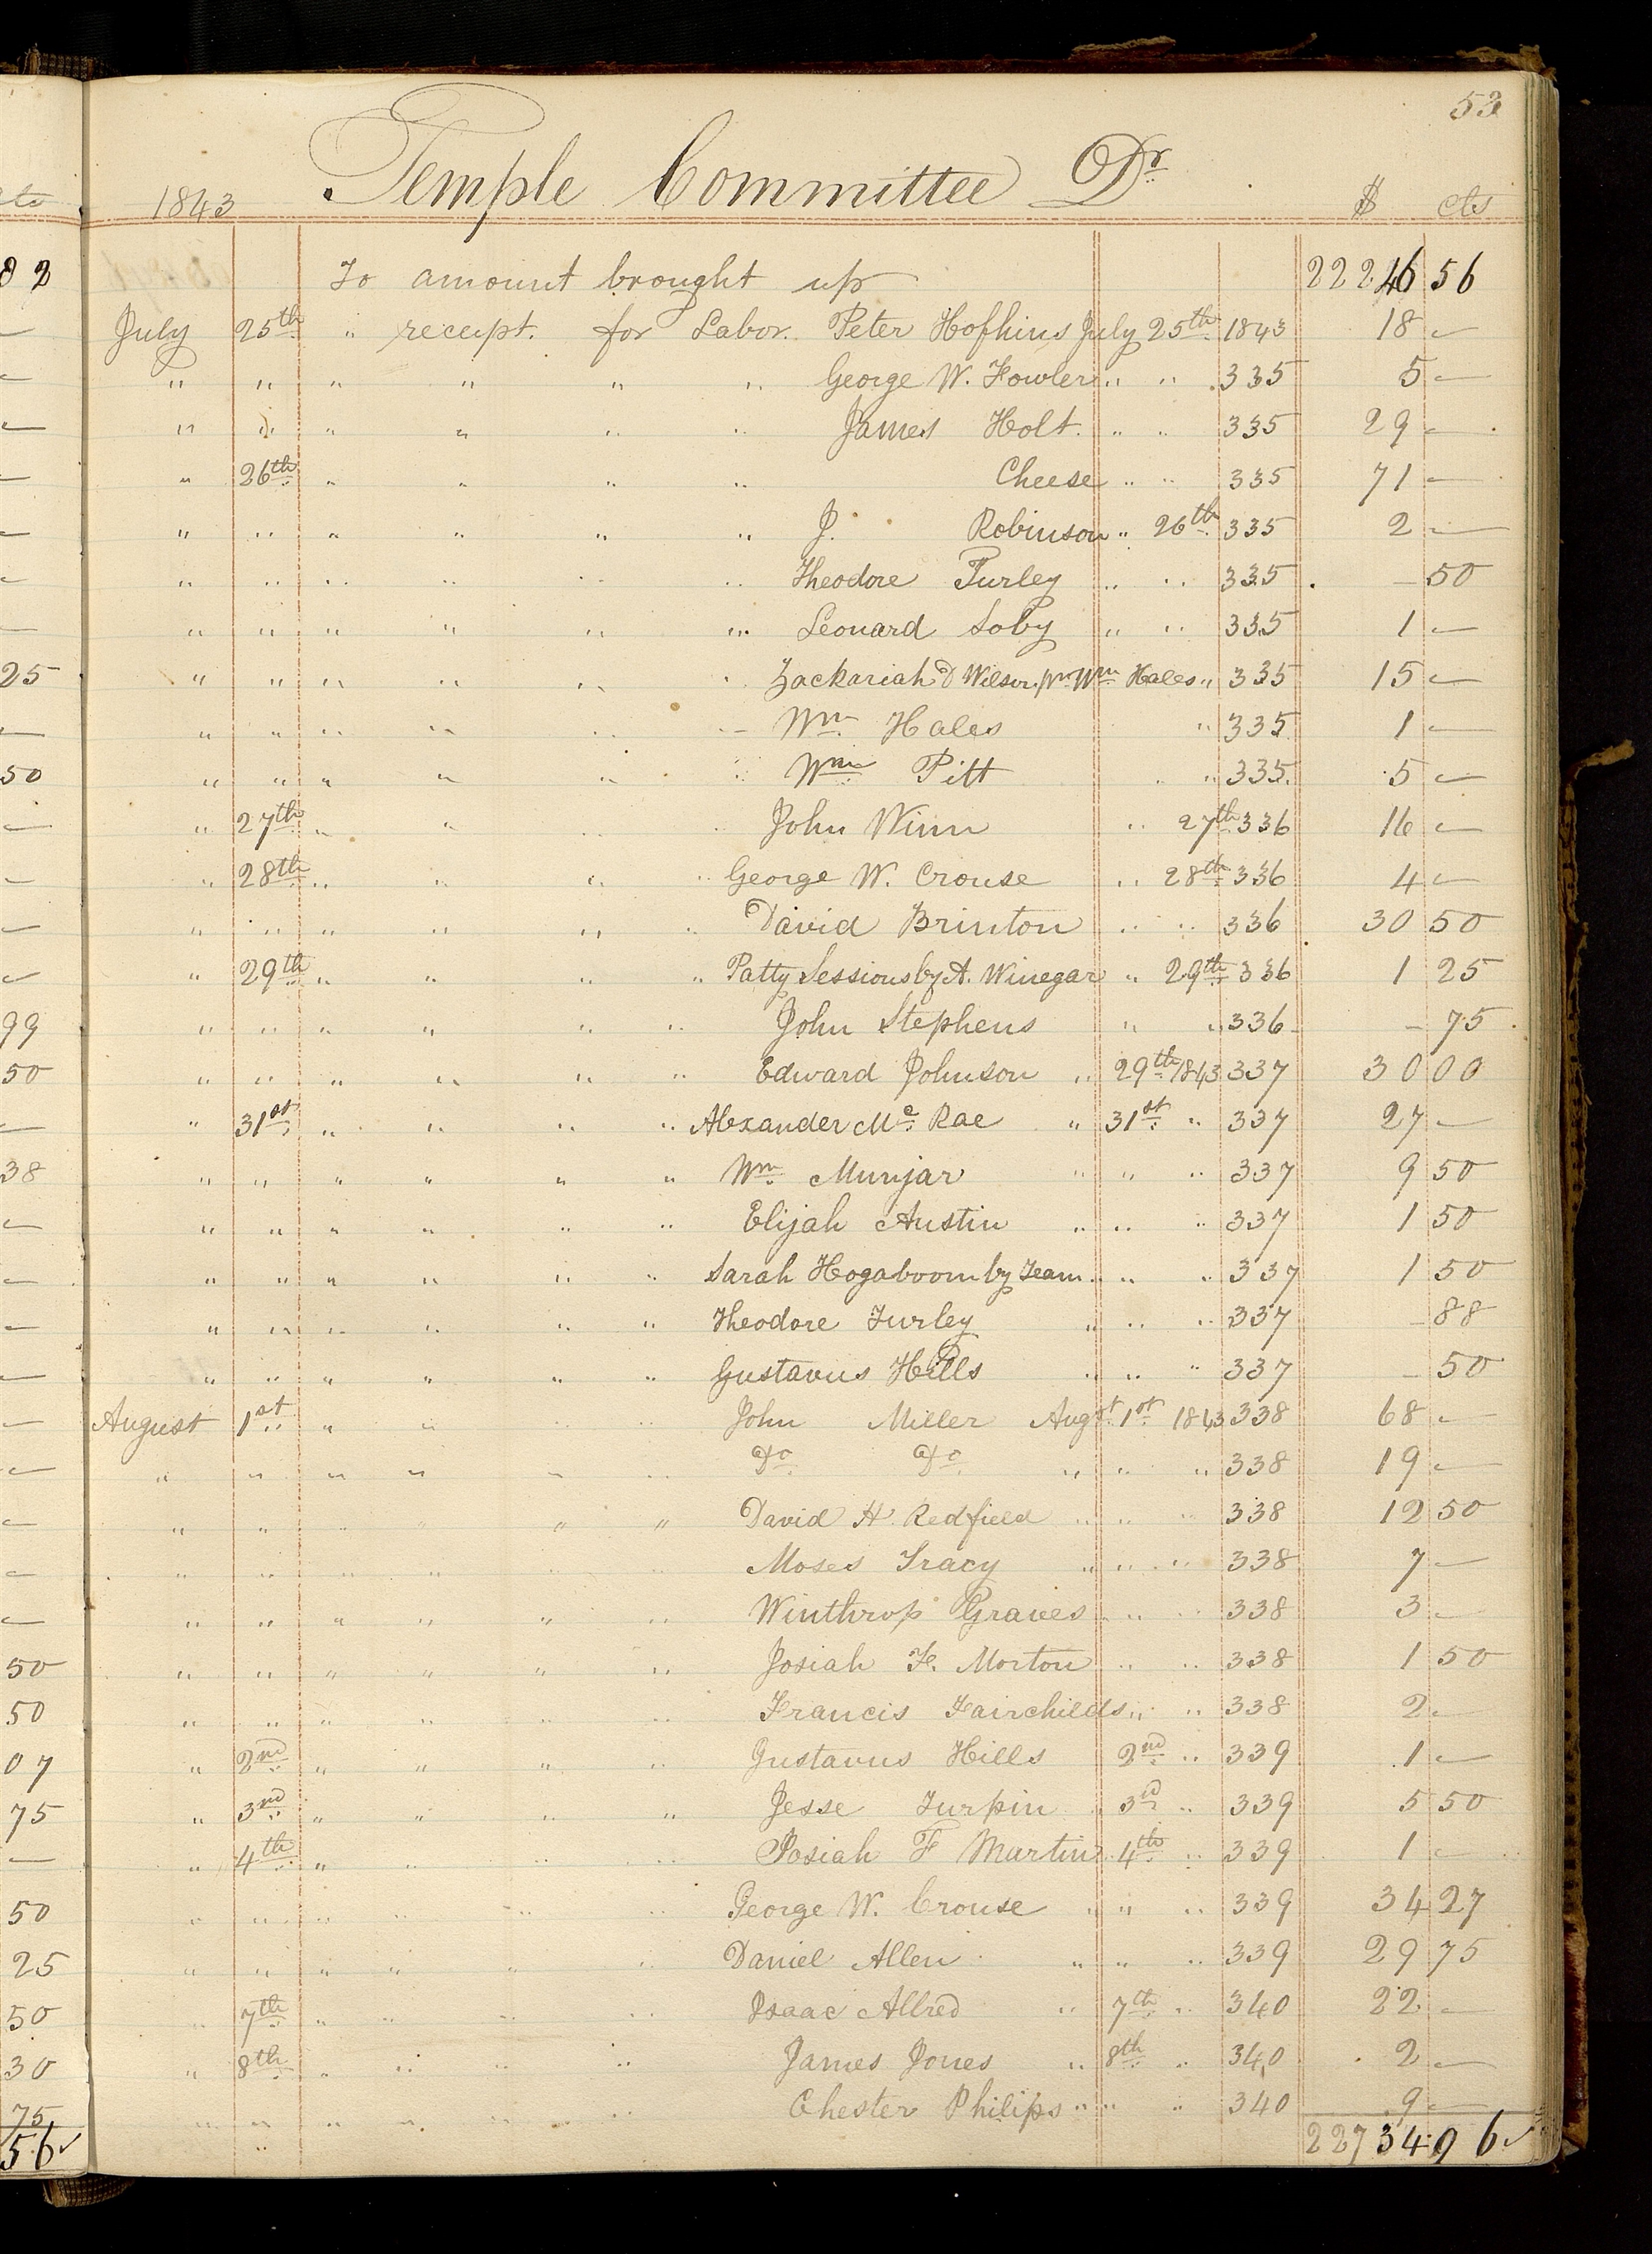 53
1843 Temple Committee Dr. $ cts
To amount brought up 22246 56
July 25th " receipt. for Labor. Peter Hofhins July 25th 1843 18 —
" " " " " " George W. Fowler " " 335 5 —
" " " " " " James Holt. " " 335 29 —
" 26th " " " " Cheese " " 335 71 —
" " " " " " J. Robinson " 26th 335 2 —
" " " " " " Theodore Turley " " 335 — 50
" " " " " " Leonard Soby " " 335 1 —
" " " " " " Zackariah D Wilson pr Wm Hales " 335 15 —
" " " " " " Wm Hales " 335 1 —
" " " " " " Wm Pitt " " 335 5 —
" 27th " " " " John Winn " 27th 336 16 —
" 28th " " " " George W. Crouse " 28th 336 4 —
" " " " " " David Brinton " " 336 30 50
" 29th " " " " Patty Sessions by A. Winegar " 29th 336 1 25
" " " " " " John Stephens " " 336 — 75
" " " " " " Edward Johnson " 29th 1843 337 30 00
" 31st " " " " Alexander Mc Rae " 31st " 337 27 —
" " " " " " Wm Munjar " " " 337 9 50
" " " " " " Elijah Austin " " " 337 1 50
" " " " " " Sarah Hogaboom by Team " " " 337 1 50
" " " " " " Theodore Turley " " " 337 — 88
" " " " " " Gustavus Hills " " " 337 — 50
August 1st " " " " John Miller Augst 1st 1843 338 68 —
" " " " " " Do Do " " " 338 19 —
" " " " " " David H Redfield " " " 338 12 50
" " " " " " Moses Tracy " " " 338 7 —
" " " " " " Winthrop Graves " " " 338 3 —
" " " " " " Josiah F. Morton " " 338 1 50
" " " " " " Francis Fairchilds " " 338 2 —
" 2nd " " " " Gustavus Hills 2nd " 339 1 —
" 3nd " " " " Jesse Turpin " 3d " 339 5 50
" 4th " " " " Josiah F Martin 4th " 339 1 —
" " " " " " George W. Crouse " " " 339 34 27
" " " " " " Daniel Allen " " " 339 29 75
" 7th " " " " Isaac Allred " 7th " 340 22 —
" 8th " " " " James Jones " 8th " 340 2 —
" " " " " " Chester Philips " " " 340 9 —
" 22734 96